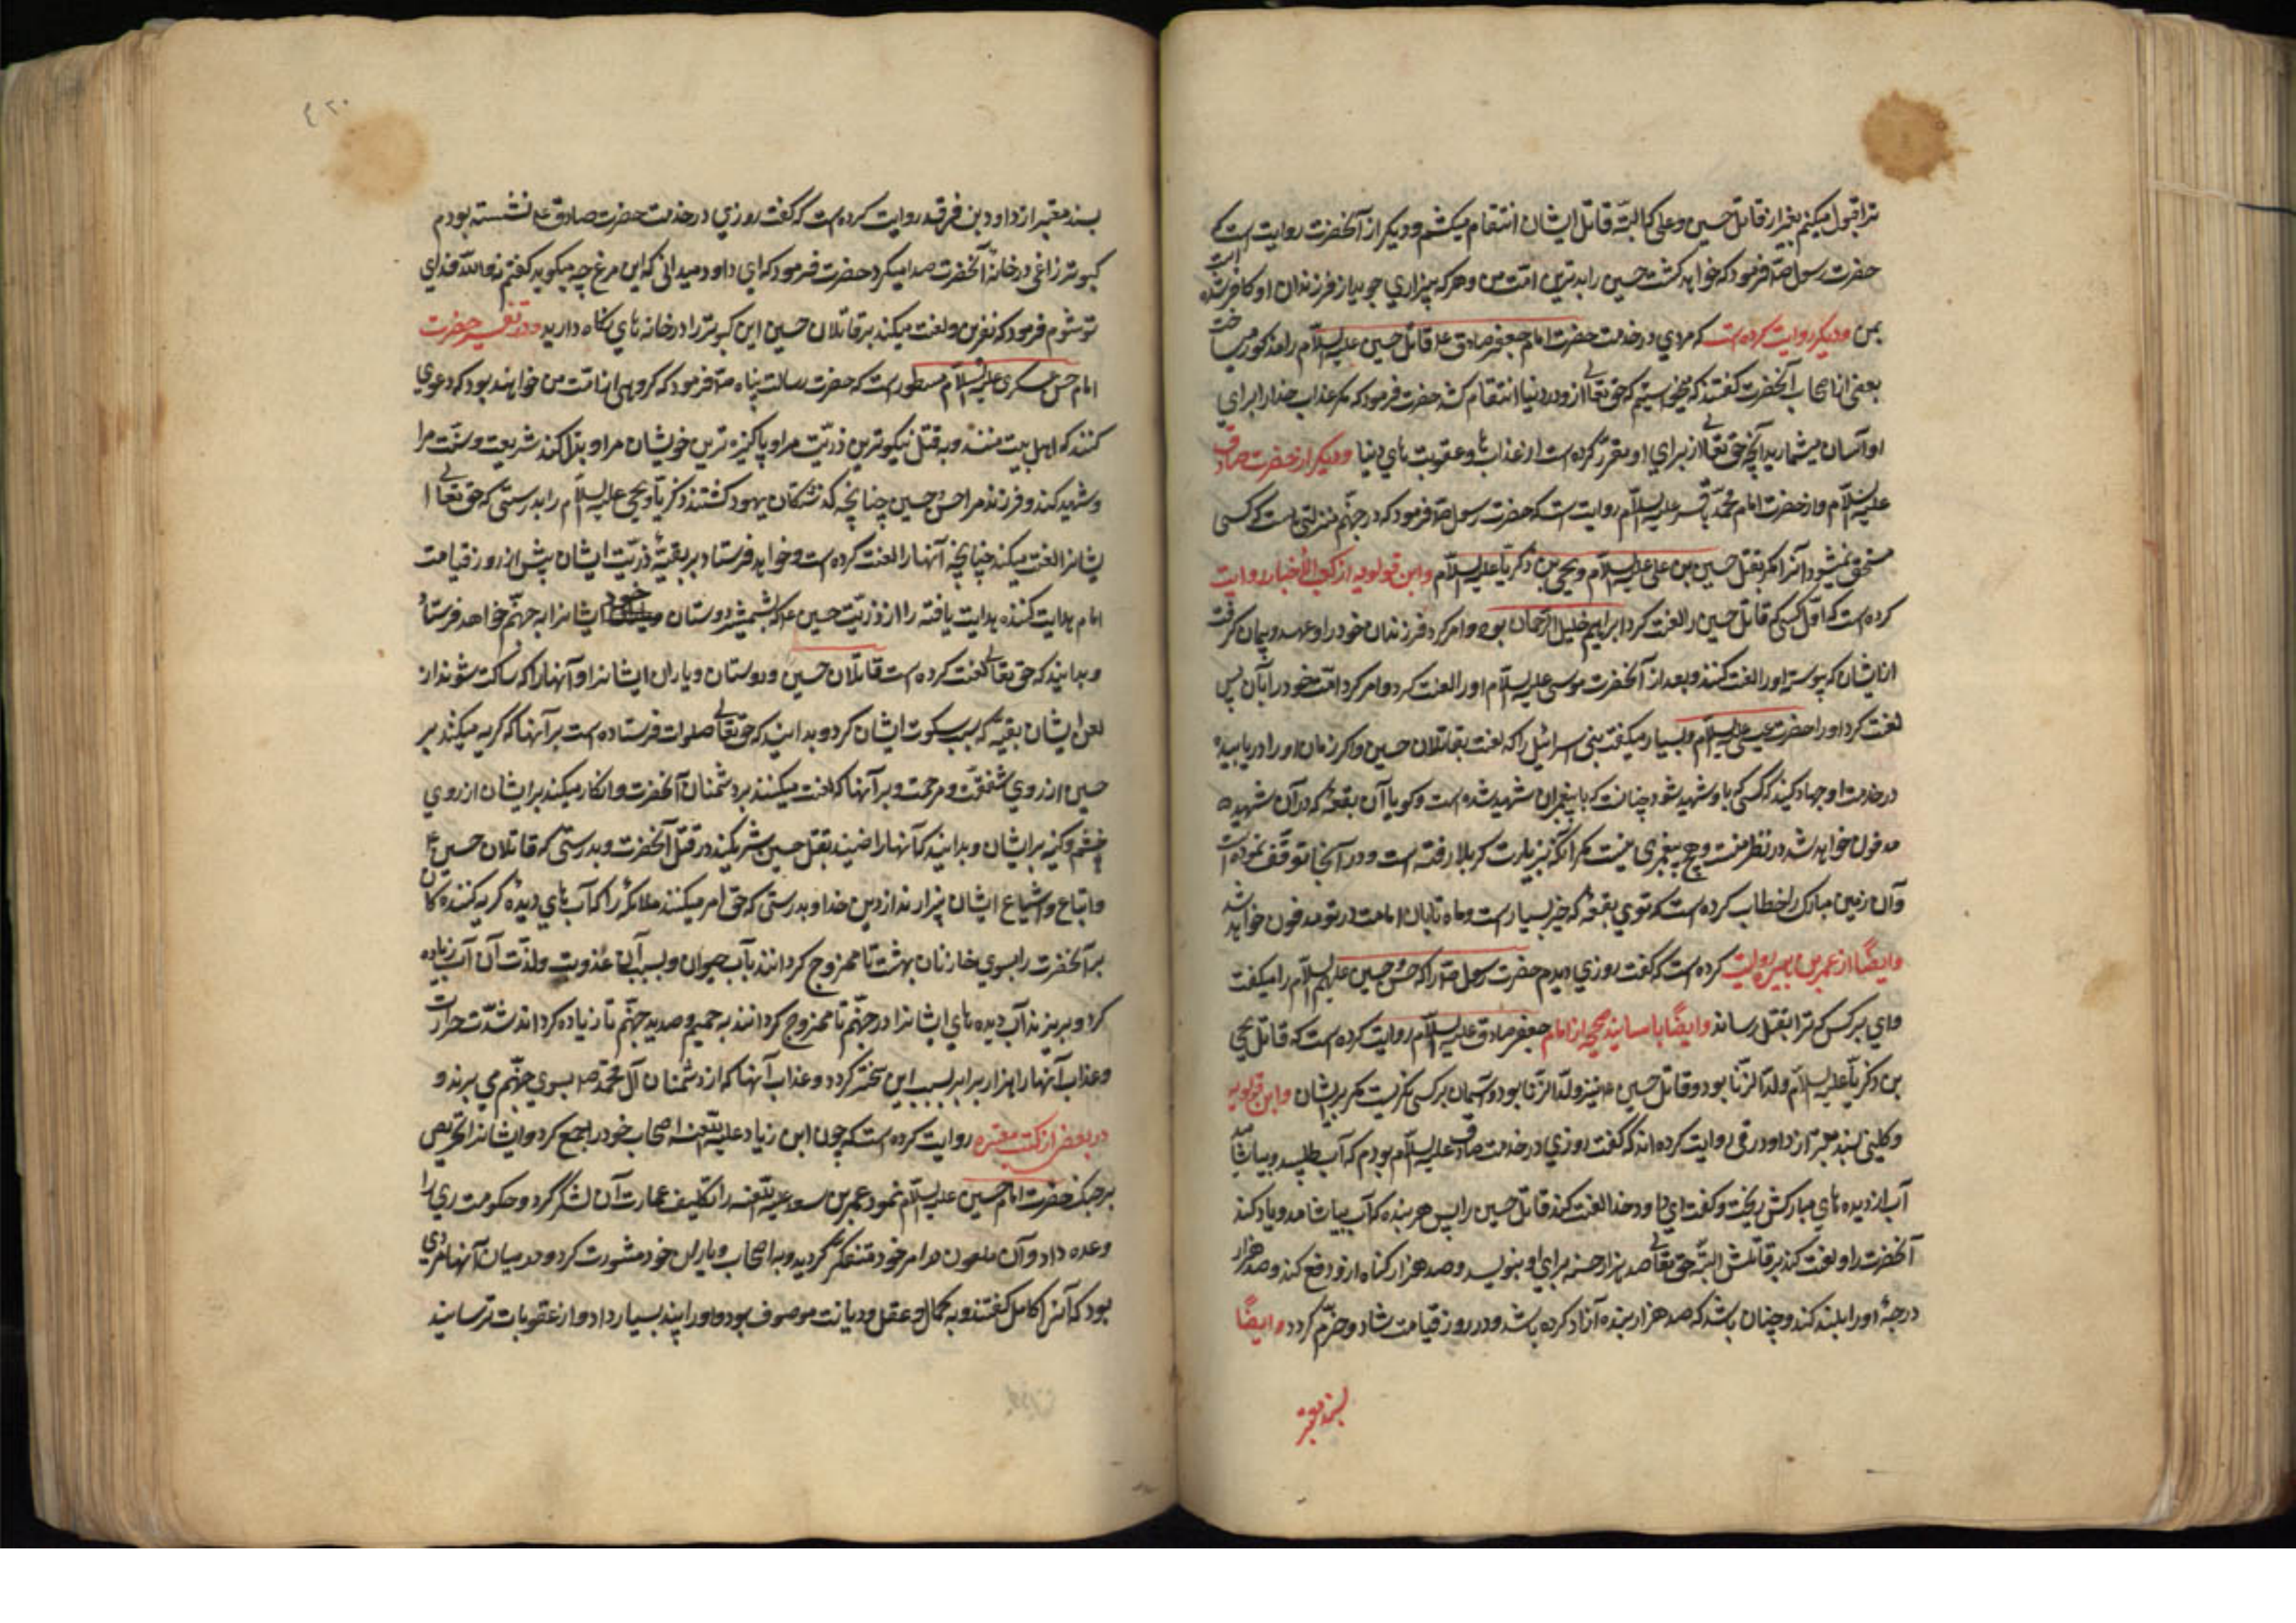 ترا قبول میکنم بغیر از قاتل حسین و علی که البته قاتل ایشان انتقام میکشم و دیگر از آنحضرت روایت است که
حضرت رسول ص فرمود که خواهد کشت حسین را بدترین امت من و هر که بیزاری جوید از فرزندان او کافر شده است
بمن و دیگر روایت کرده است که مردی در خدمت حضرت امام جعفر صادق ع قاتل حسین علیه السلام را مذکور میساخت
بعضی از اصحاب آنحضرت گفتند که میخواستیم که حق تعالی ازو در دنیا انتقام کشد حضرت فرمود که مگر عذاب خدا را برای
او آسان میشمارید آنچه حق تعالی از برای او مقرر کرده است از عذاب ها و عقوبت های دنیا و دیگر از حضرت صادق
علیه السلام و از حضرت امام محمد باقر علیه السلام روایت است که حضرت رسول ص فرمود که در جهنم منزلتی هست که کسی
مستحق نمیشود آنرا مگر بقتل حسین بن علی علیه السلام و یحیی بن زکریا علیه السلام و ابن قولویه از کعب الأخبار روایت
کرده است که اول کسی که قاتل حسین را لعنت کرد ابراهیم خلیل الرحمان بود و امر کرد فرزندان خود را و عهد و پیمان گرفت
از ایشان که پیوسته او را لعنت کنند و بعد از آنحضرت موسی علیه السلام او را لعنت کرد و امر کرد امت خود را بآن پس
لعنت کرد او را حضرت عیسی علیه السلام و بسیار میگفت بنی اسرائیل را که لعنت بقاتلان حسین و اگر زمان او را دریابید
در خدمت او جهاد کنید که کسی که با او شهید شود چنانست که با پیغمبران شهید شده است و گویا آن بقعه که در آن شهید
مدفون خواهد شد در نظر منست و هیچ پیغمبری نیست مگر آنکه بزیارت کربلا رفته است و در آنجا توقف نموده است
و آن زمین مبارک را خطاب کرده است که توی بقعه که خیر بسیار است و ماه تابان امامت در تو مدفون خواهد شد
و ایضاً از عمر بن هبیره روایت کرده است که گفت روزی دیدم حضرت رسول ص را که حسن و حسین علیهم السلام را میگفت
وای بر کسی که ترا بقتل رساند و ایضاً باسانید صحیحه از امام جعفر صادق علیه السلام روایت کرده است که قاتل یحیی
بن زکریا علیه السلام ولد الزنا بود و قاتل حسین ع نیز ولد الزنا بود و آسمان بر کسی نگریست مگر بر ایشان و ابن قولویه
و کلینی بسند معتبر از داود رقی روایت کرده اند که گفت روزی در خدمت صادق علیه السلام بودم که آب طلبید و بیاشامید
آب از دیده های مبارکش ریخت و گفت ای داود خدا لعنت کند قاتل حسین را پس هر بنده که آب بیاشامد و یاد کند
آنحضرت را و لعنت کند بر قاتلش البته حق تعالی صد هزار حسنه برای او بنویسد و صد هزار گناه ازو رفع کند و صد هزار
درجهٔ او را بلند کند و چنان باشد که صد هزار بنده آزاد کرده باشد و در روز قیامت شاد و خرم گردد و ایضاً
بسند معتبر
۴۲۰
بسند معتبر از داود بن فرقد روایت کرده است که گفت روزی در خدمت حضرت صادق ع نشسته بودم
کبوتر زاغی در خانهٔ آنحضرت صدا میکرد حضرت فرمود که ای داود میدانی که این مرغ چه میگوید گفتم نه والله فدای
تو شوم فرمود که نفرین و لعنت میکند بر قاتلان حسین این کبوتر را در خانه های نگاه دارید و در تفسیر حضرت
امام حسن عسکری علیه السلام مسطور است که حضرت رسالت پناه ص فرمود که گروهی از امت من خواهند بود که دعوی
کنند که اهل بیت منند و بقتل نیکوترین ذریت مرا و پاکیزه ترین خویشان مرا و بدل کنند شریعت و سنت مرا
و شهید کند و فرزند مرا حسن و حسین چنانچه گذشتگان یهود کشتند زکریا و یحیی علیه السلام را بدرستی که حق تعالی
ایشانرا لعنت میکند چنانچه آنها را لعنت کرده است و خواهد فرستاد بر بقیهٔ ذریت ایشان پیش از روز قیامت
امام هدایت کننده هدایت یافته را از ذریت حسین ع که بشمشیر دوستان خود ایشانرا به جهنم خواهد فرستاد
و بدانید که حق تعالی لعنت کرده است قاتلان حسین و دوستان و یاران ایشانرا و آنها را که ساکت شوند از
لعن ایشان بقیه که سبب سکوت ایشان کرد و بدانید که حق تعالی صلوات فرستاده است بر آنها که گریه میکنند بر
حسین از روی شفقت و مرحمت و بر آنها که لعنت میکنند بر دشمنان آنحضرت و انکار میکند بر ایشان از روی
خشم و کینه بر ایشان و بدانید که آنها راضیند بقتل حسین شریکند در قتل آنحضرت و بدرستی که قاتلان حسین ع
و اتباع و اشیاع ایشان بیزارند از دین خدا و بدرستی که حق امر میکنند ملائکه را که آب های دیده گریه کنندگان
بر آنحضرت را بسوی خازنان بهشت تا ممزوج گردانند بآب حیوان و بسبب آن عذوبت و لذت آن آب زیاده
گرد و بریزند آب دیده های ایشانرا در جهنم تا ممزوج گردانند به حمیم و صدید جهنم تا زیاده گرداند شدت حرارت
و عذاب آنها را هزار برابر بسبب این سخته گردد و عذاب آنها که از دشمنان آل محمد ص بسوی جهنم می برند و
در بعض از کتب معتبره روایت کرده است که چون ابن زیاد علیه اللعنه اصحاب خود را جمع کرد و ایشانرا تحریص
بر جنگ حضرت امام حسین علیه السلام نمود عمر بن سعد علیه اللعنه را تکلیف عمارت آن لشگر کرد و حکومت ری را
وعده داد و آن ملعون در امر خود متفکر گردید و به اصحاب و یاران خود مشورت کرد و در میان آنها مردی
بود که آنرا کامل گفتند و به کمال و عقل و دیانت موصوف بود و او را پند بسیار داد و از عقوبات ترسانید